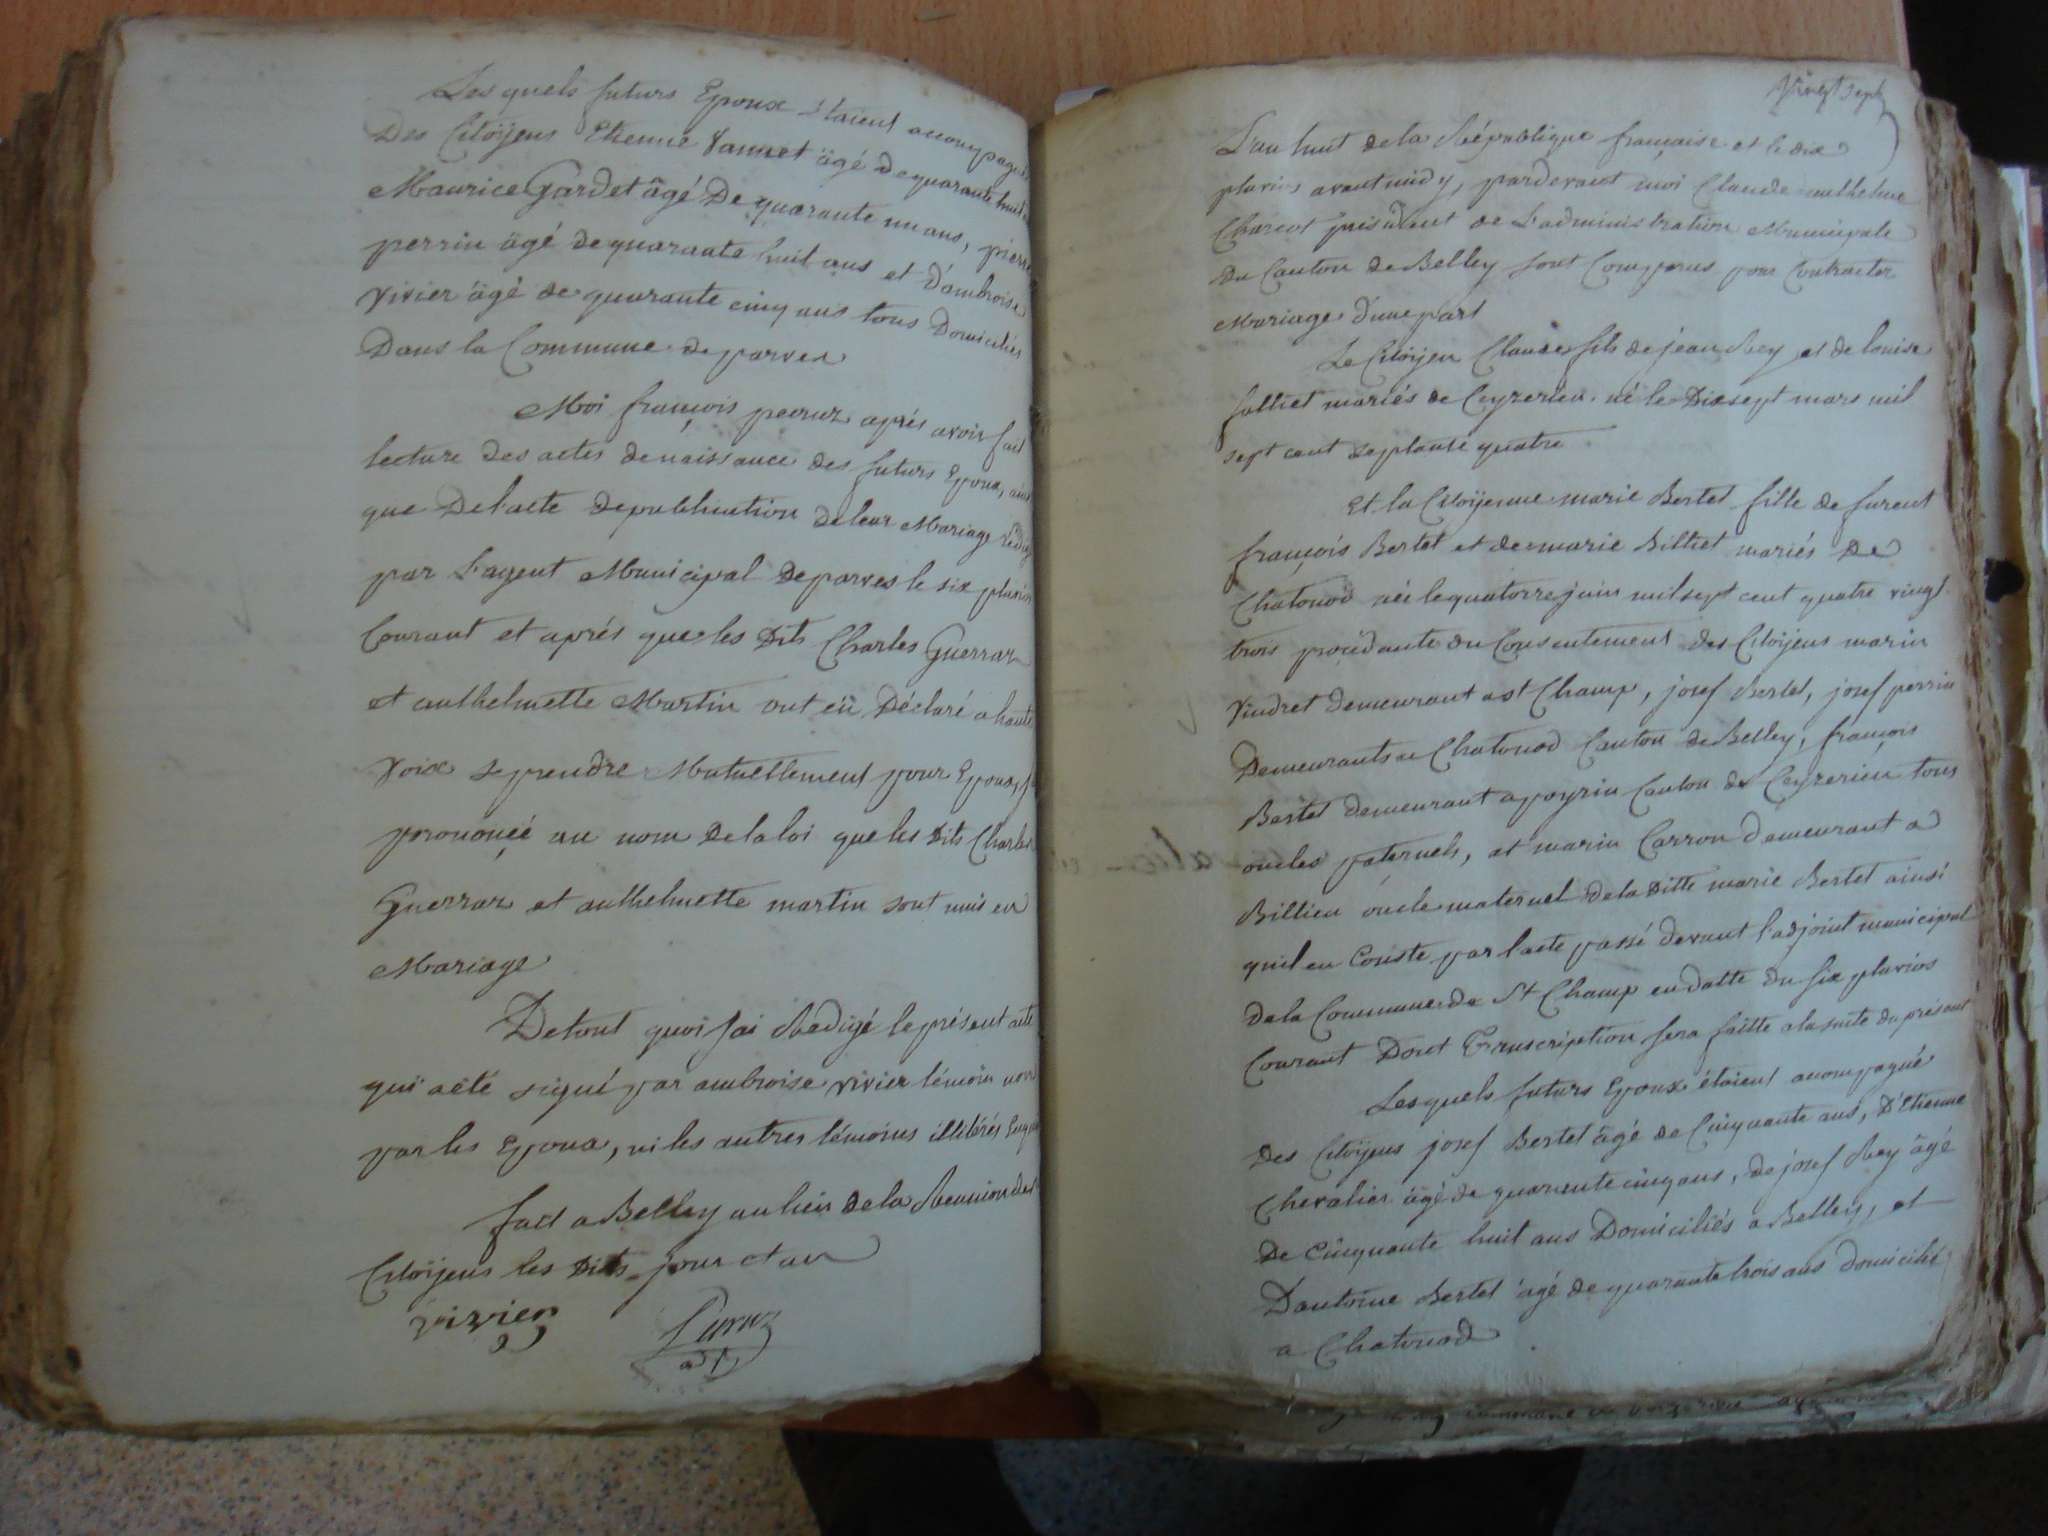 Lesquels futurs Epoux étaient accompagnés
Des Citöyens Etienne Vannet âgé de quarante huit
Maurice Gardet âgé De quarante un ans, pierre
perrin âgé de quarante huit ans et D'ambroise
Vivier âgé de quarante cinq ans tous Domiciliés
Dans la Commune de parves
Moi françois peeruz aprés avoir fait
lecture des actes de naissance des futurs Epoux, ainsi
que De l'acte de publication de leur Mariage Rédigé
par L'agent Municipal De parves le six pluvios
Courant et aprés que les Dits Charles Guerraz
et anthelmette Martin ont eü Déclaré a haute
Voix se prendre Mutuellement pour Epoux, j'ai
prononcé au nom De la loi que les Dits Charles
Guerraz et anthelmette martin sont unis en
Mariage
De tout quoi J'ai Rédigé le présent acte
qui a été signé par ambroise vivier témoin non
par les Epoux, ni les autres témoins illitérés
fait a Belley au lieu de la Reunion des
Citöyens les Dits jour et an
vivier
Vingt sept
L'an huit de la République française et le dix
pluvios avant midy, pardevant moi Claude anthelme
Charcot président de L'administration Municipale
Du Canton de Belley sont Comparus pour Contracter
Mariage d'une part
Le Citöyen Claude fils de jean Rey et de louise
folliet mariés de Ceyzerieu né le Dix sept mars mil
sept cent septante quatre
Et la Citöyenne marie Bertet fille de furent
françois Bertet et de marie Billiet mariés De
Chatonod née le quatorze juin mil sept cent quatre vingt
trois procédante du Consentement des Citöyens marin
Vindret demeurant a St Champ, josef Bertet, josef perrin
Demeurants a Chatonod Canton de Belley, françois
Bertet demeurant a poyrin Canton de Ceyzerieu tous
oncles paternels, et marin Carron demeurant a
Billieu oncle maternel de la Ditte marie Bertet ainsi
quil en Conste par l'acte passé devant l'adjoint municipal
de la Commune de St Champ en datte du six pluvios
Courant Dont Transcription sera faitte a la suite du présent
Lesquels futurs Epoux étaient acompagné
Des Citöyens josef Bertet âgé de Cinquante ans, D'Etienne
Chevalier âgé de quarente cinq ans, de josef Rey âgé
De Cinquante huit ans Domiciliés a Belley, et
D'antoine Bertet âgé de quarante trois ans domicilié
a Chatonod